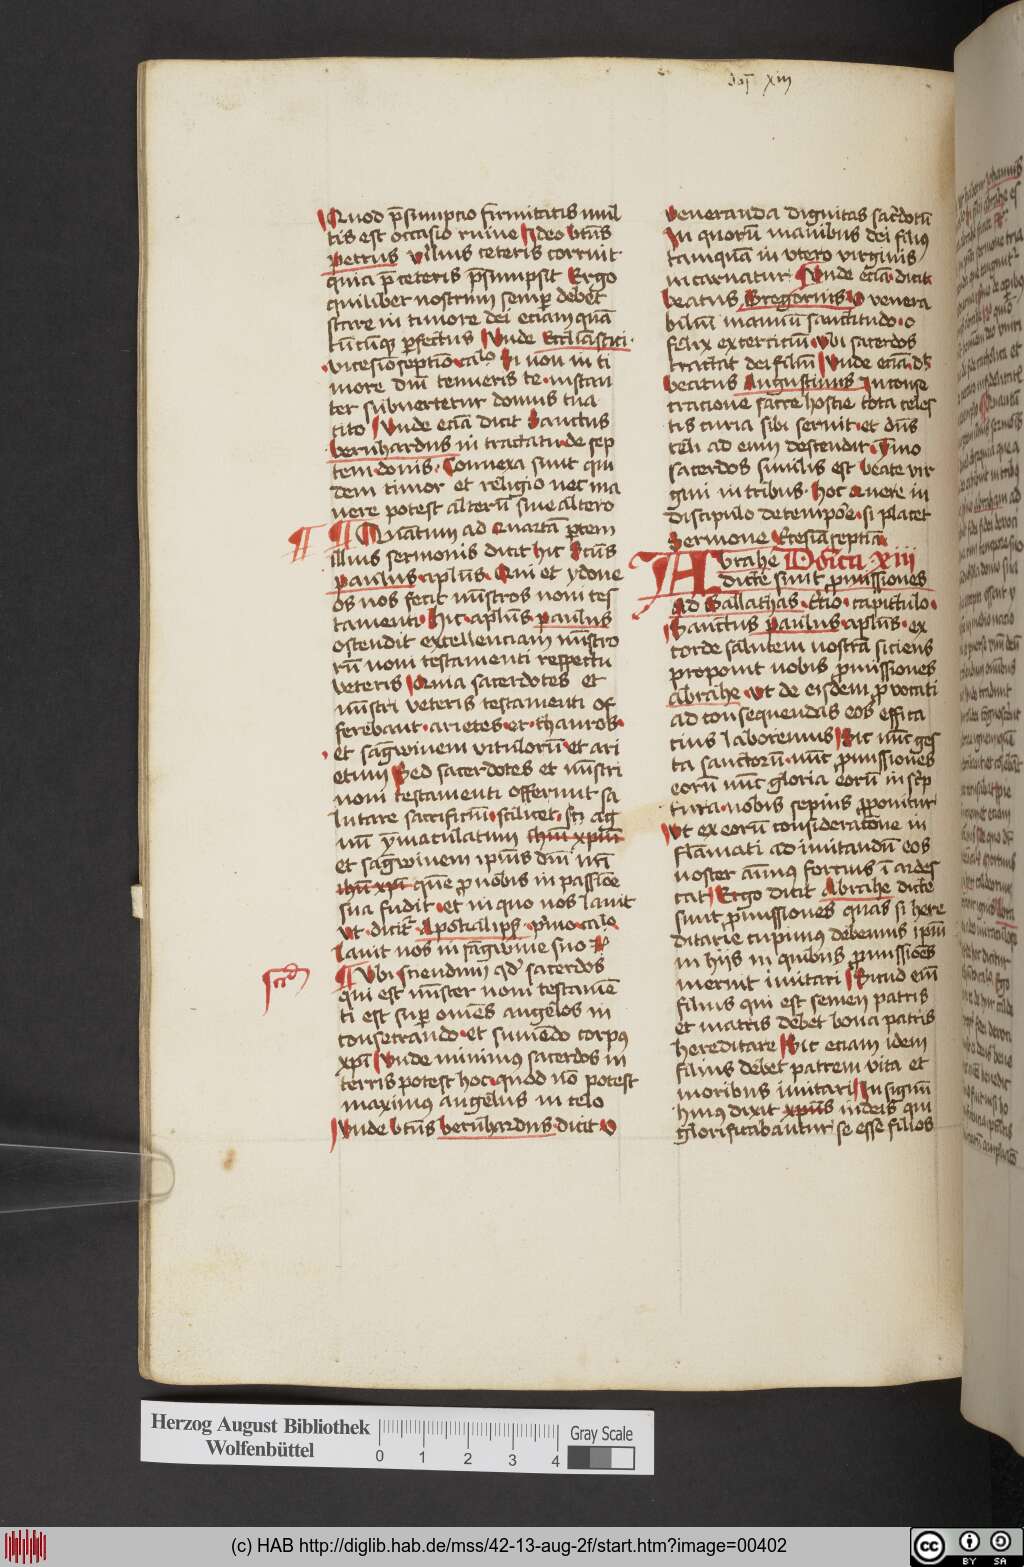 Quod p̄sumpcio firmitatis mul
tis est occasio ruine Ideo btūs
petrus vilius ceteris corruit
quia p̄ ceteris p̄sumpsit Ergo
quilibet nostrum semp debet
stare in timore dei etiam quā
tūcūq pfectus Unde Ecclīastici
vicesioseptīo calo Si non in ti
more dn̄i tenueris te instan
ter subvertetur domus tua
cito Unde eciā dicit Sanctus
bernhardus in tractatu de sep
tem donis Connexa sunt qui
dem timor et religio nec ma
nere potest alterū sine altero
Quātum ad Quartā ptem
illius sermonis dicit hic Sctūs
paulus aplūs Qui et ydone
os nos fecit mīstros noui tes
tamenti hic aplūs paulus
ostendit excellenciam mīstro
rū noui testamenti respectu
veteris Quia sacerdotes et
mīstri veteris testamenti of
ferebant arietes et thauros
et sāgwinem vitulorū et ari
etum Sed sacerdotes et mīstri
noui testamenti offerunt sa
lutare sacrificiū scilicet sci ag
nū ymaculatum ihm xpm
et sāgwinem ipius dn̄i nr̄i
ihu xpi quē pro nobis in passiōe
sua fudit et in quo nos lauit
vt dicitr Apokalips pimo cale
Lauit nos in sāgwine suo
Scdm
Ubi Sciendum qd sacerdos
qui est mīster noui testamē
ti est sup omēs angelos in
consecrando et sumēdo corpus
xpi Unde minimus sacerdos in
terris potest hoc quod nō potest
maximus angelus in celo
Unde btūs bernhardus dicit O
xiii
veneranda dignitas sacdotū
In quorū manibus dei filius
tamquā in vtero virginis
incarnatur Unde eciā dicit
beatus Gregorius O venera
bilium manuū sanctitudo o
felix exercitiū vbi sacerdos
tractat dei filiū Unde eciā dt
beatus Augustinus In conse
cracione sacre hostie tota celes
tis curia sibi seruit et dūs
celi ad eum descendit Ymo
sacerdos similis est beate vir
gini in tribus hoc quere in
discipulo de tempore si placet
Sermone Ecesiāseptiā
Abrahe Dn̄ica xiii
dicte sunt promissiones
Ad Gallathas Ecio capitulo
Sanctus paulus aplūs ex
corde salutem nostrā siciens
proponit nobis promissiones
abrahe vt de eisdem prouocati
ad consequendas eos effica
cius laboremus Hic nūc ges
ta sanctorū nūc promissiones
eorū nūc gloria eorū in scrip
tura nobis sepius proponitur
Ut ex eorū consideracōne in
flāmati ad imitandū eos
noster aīmus forcius īardes
cat Ergo dicit Abrahe dicte
sunt promissiones quas si here
ditarie cupimus debemus ipm
in hiis in quibus promissiōes
meruit imitari Sicud em̄
filius qui est semen patris
et matris debet bona patris
hereditare Sic etiam idem
filius debet patrem vita et
moribus imitari In signū
huius dixit xpus iudeis qui
glorificabantur se esse filios
Herzog August Bibliothek
Wolfenbüttel
0 1 2 3 4
Gray Scale
(c) HAB http://diglib.hab.de/mss/42-13-aug-2f/start.htm?image=00402
cc BY SA